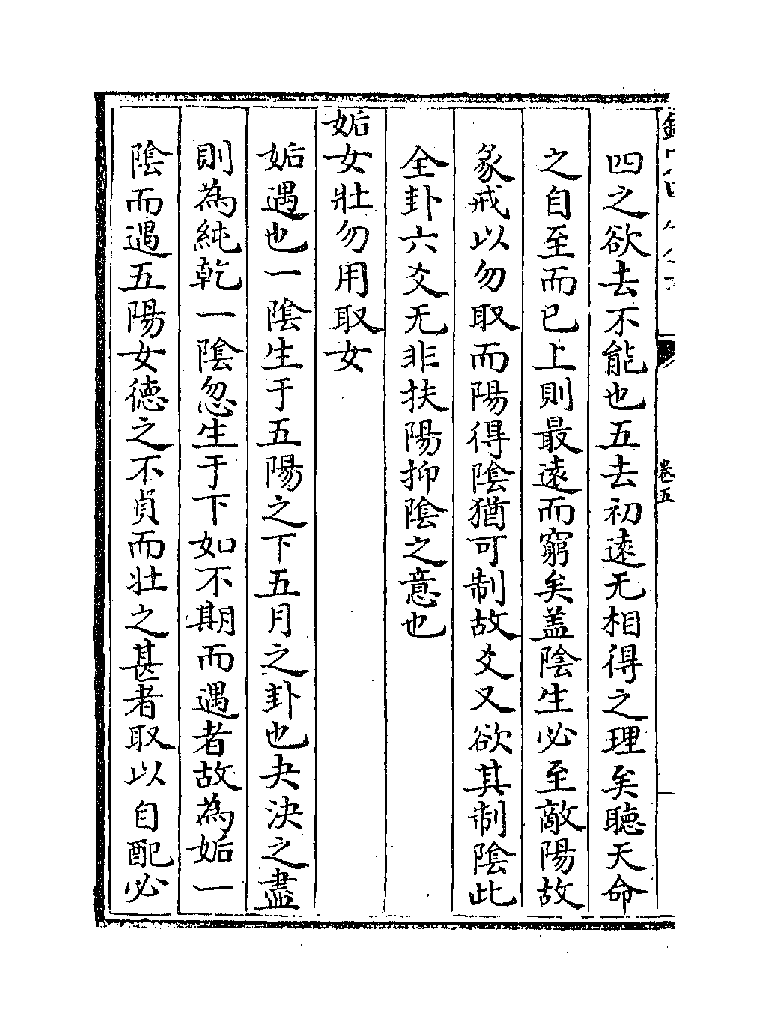 四之欲去不能也五去初逺无相得之理矣聴天命
之自至而已上則最逺而窮矣盖陰生必至敵陽故
彖戒以勿取而陽得陰猶可制故爻又欲其制陰此
全卦六爻无非扶陽抑陰之意也
姤女壯勿用取女
姤遇也一陰生于五陽之下五月之卦也夬決之盡
則為純乾一陰忽生于下如不期而遇者故為姤一
陰而遇五陽女徳之不貞而壮之甚者取以自配必
卷五